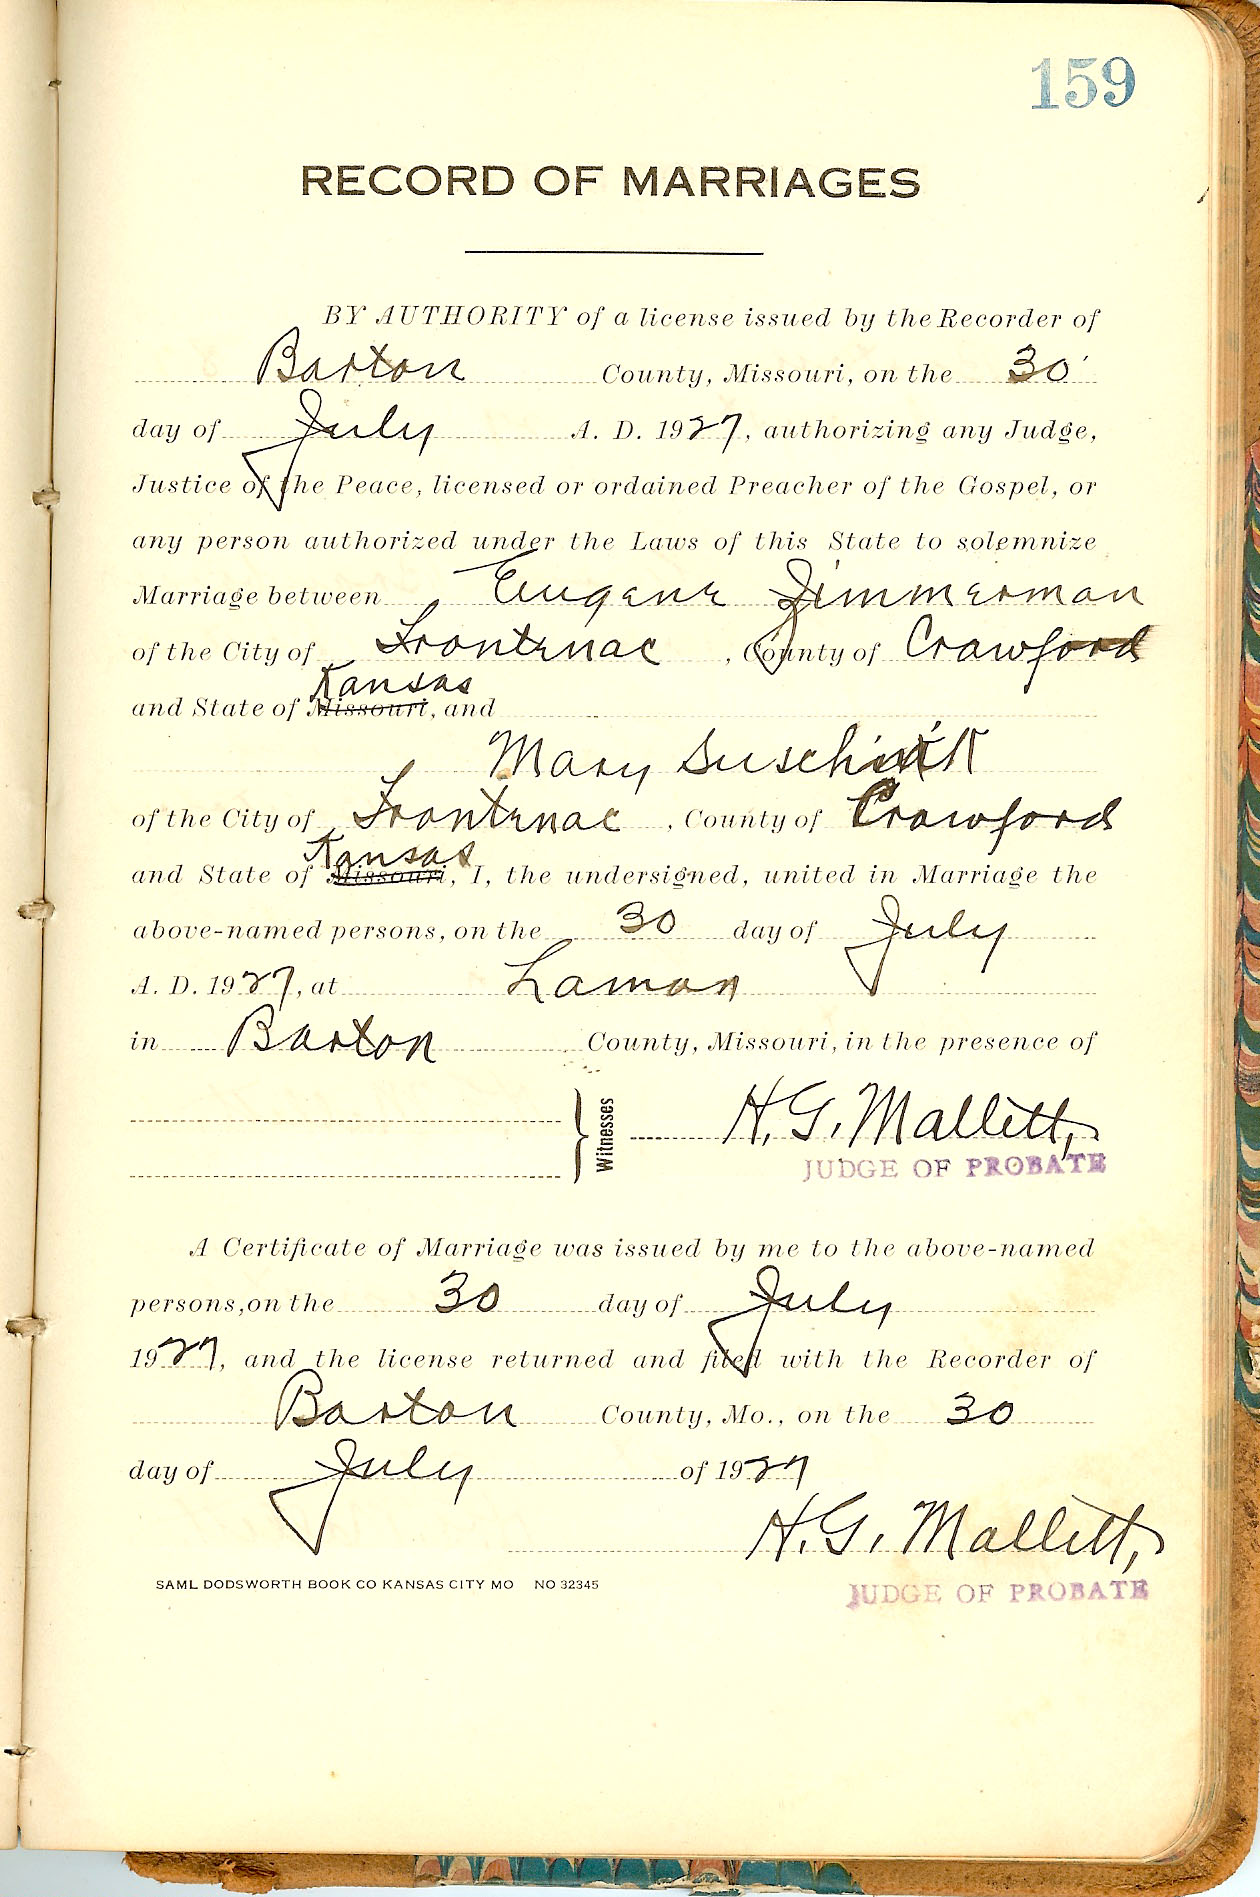 159
RECORD OF MARRIAGES
BY AUTHORITY of a license issued by the Recorder of
Barton County, Missouri, on the 30
day of July A. D. 1927, authorizing any Judge,
Justice of the Peace, licensed or ordained Preacher of the Gospel, or
any person authorized under the Laws of this State to solemnize
Marriage between Eugene Zimmerman
of the City of Frontenac, County of Crawford
Kansas
and State of Missouri, and
Mary
of the City of Frontenac, County of Crawford
Kansas
and State of Missouri, I, the undersigned, united in Marriage the
above-named persons, on the 30 day of July
A. D. 1927, at Lamar
in Barton County, Missouri, in the presence of
Witnesses H. G. Mallett,
JUDGE OF PROBATE
A Certificate of Marriage was issued by me to the above-named
persons, on the 30 day of July
1927, and the license returned and filed with the Recorder of
Barton County, Mo., on the 30
day of July of 1927
H. G. Mallett,
JUDGE OF PROBATE
SAML DODSWORTH BOOK CO KANSAS CITY MO NO 32345